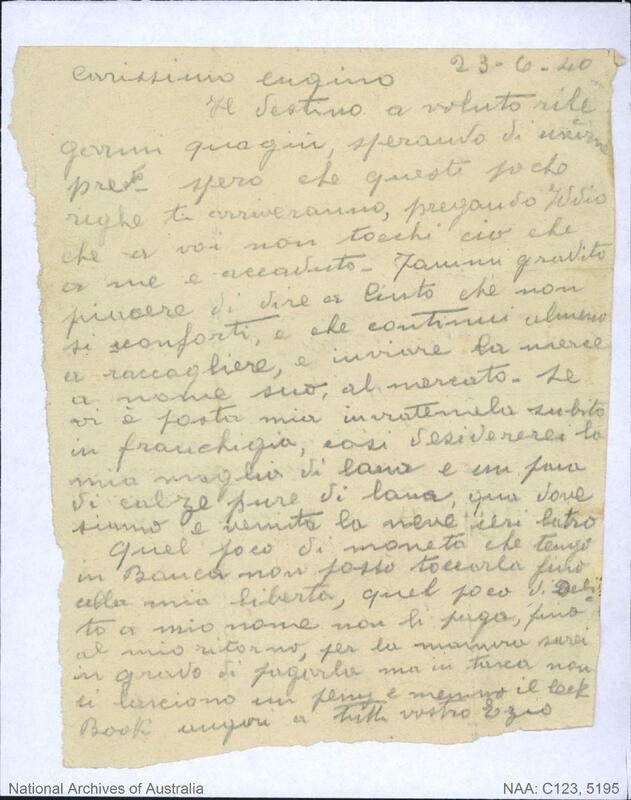 23-6-40
Carissimo cugino
Il destino a voluto rile
garmi quagiù, sperando di uscirne
presto spero che queste poche
righe ti arriveranno, pregando Iddio
che a voi non tocchi ciò che
a me e accaduto - Fammi gradito
piacere di dire a Cinto che non
si sconforti, e che continui almeno
a raccogliere, e inviare la merce
a nome suo, al mercato - Se
vi è posta mia inviatemela subito
in franchigia, così desidererei la
mia maglia di lana e un paia
di calze pure di lana, qua dove
siamo e venuta la neve ieri latro
Quel poco di moneta che tengo
in Banca non posso toccarla fino
alla mia liberta, quel poco di Debi
to a mio nome non li paga, fino
al mio ritorno, per la sarei
in grado di pagarla ma in tasca non
ci lasciono un peny e menno il cek
Book auguri a tutti vostro Ezio
National Archives of Australia
NAA: C123, 5195